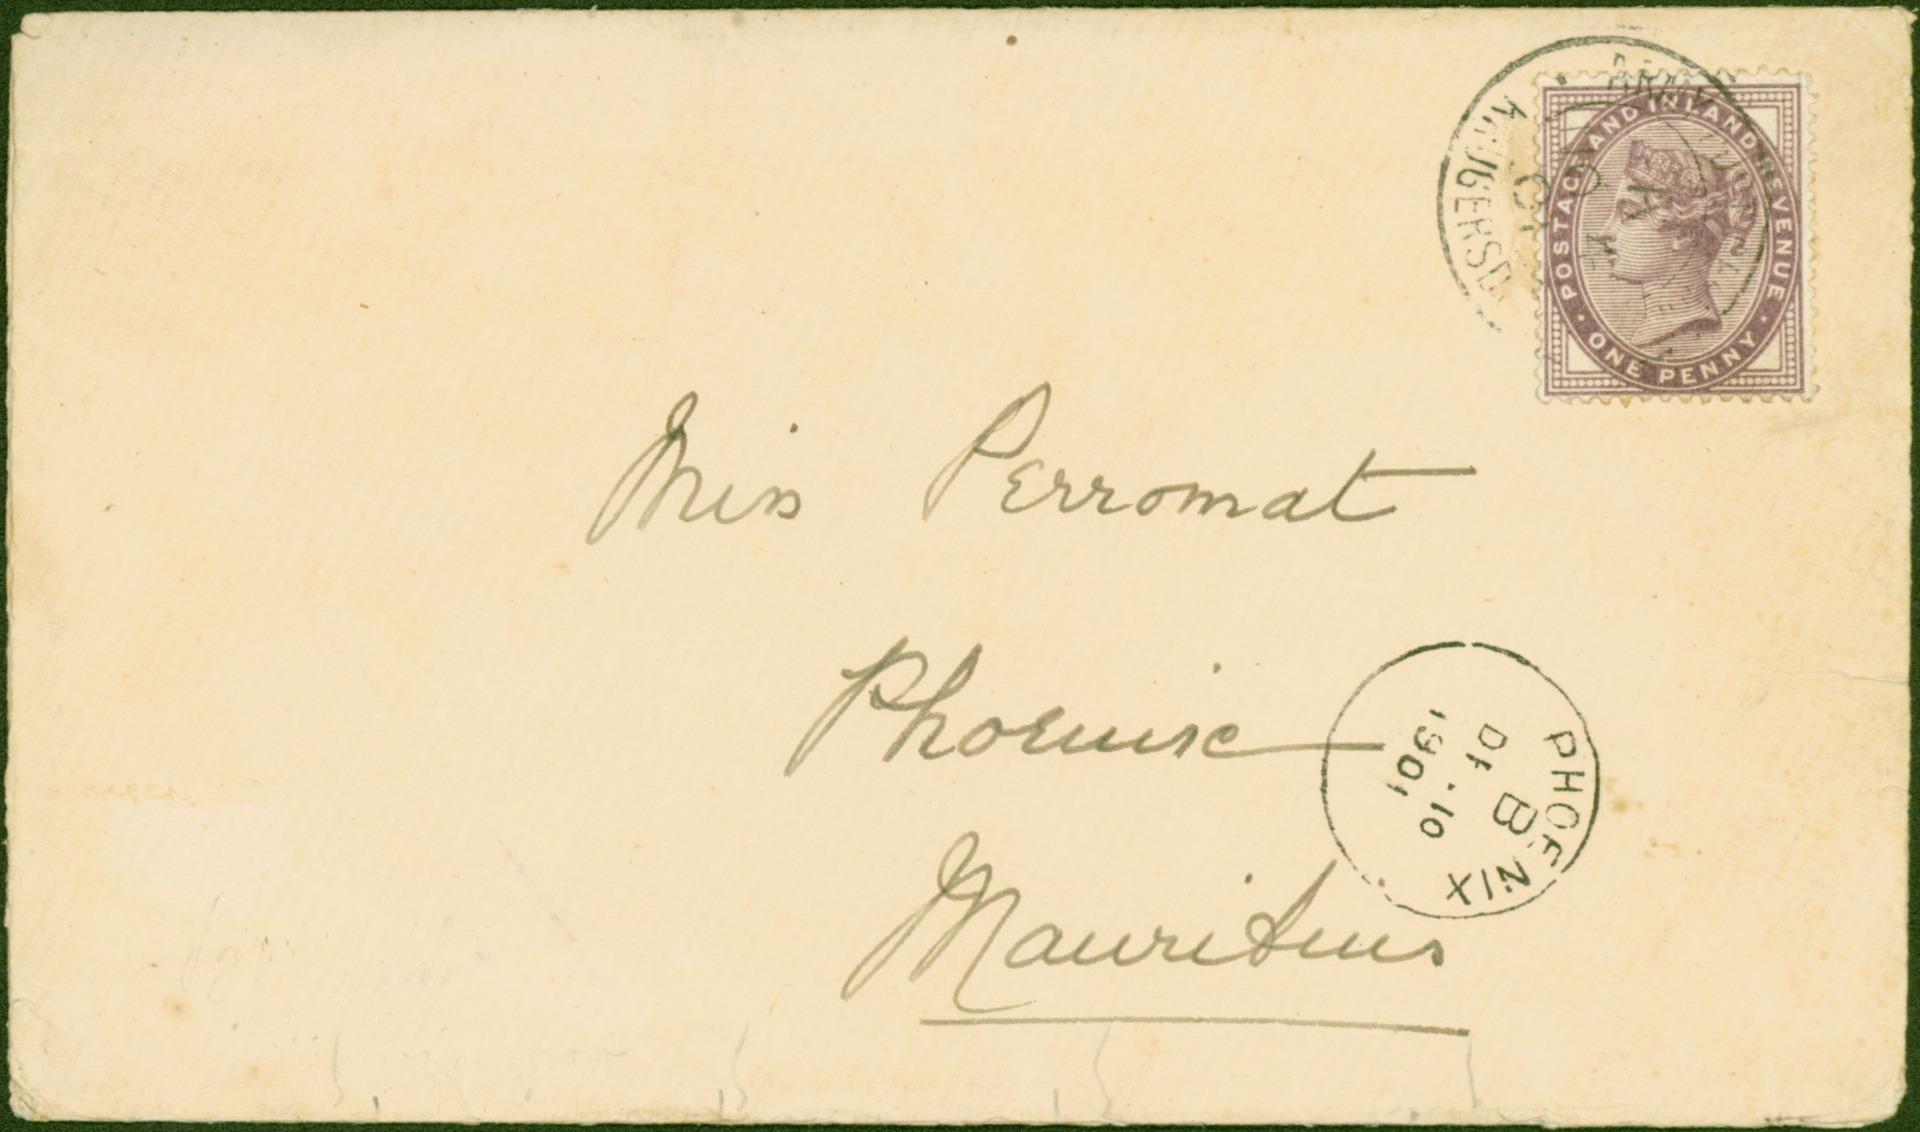 POSTAGE AND INLAND REVENUE
ONE PENNY
ARMY
A
NO
01
Miss Perromat
Phoenix
Mauritius
PHOENIX
B
DE 10
1901